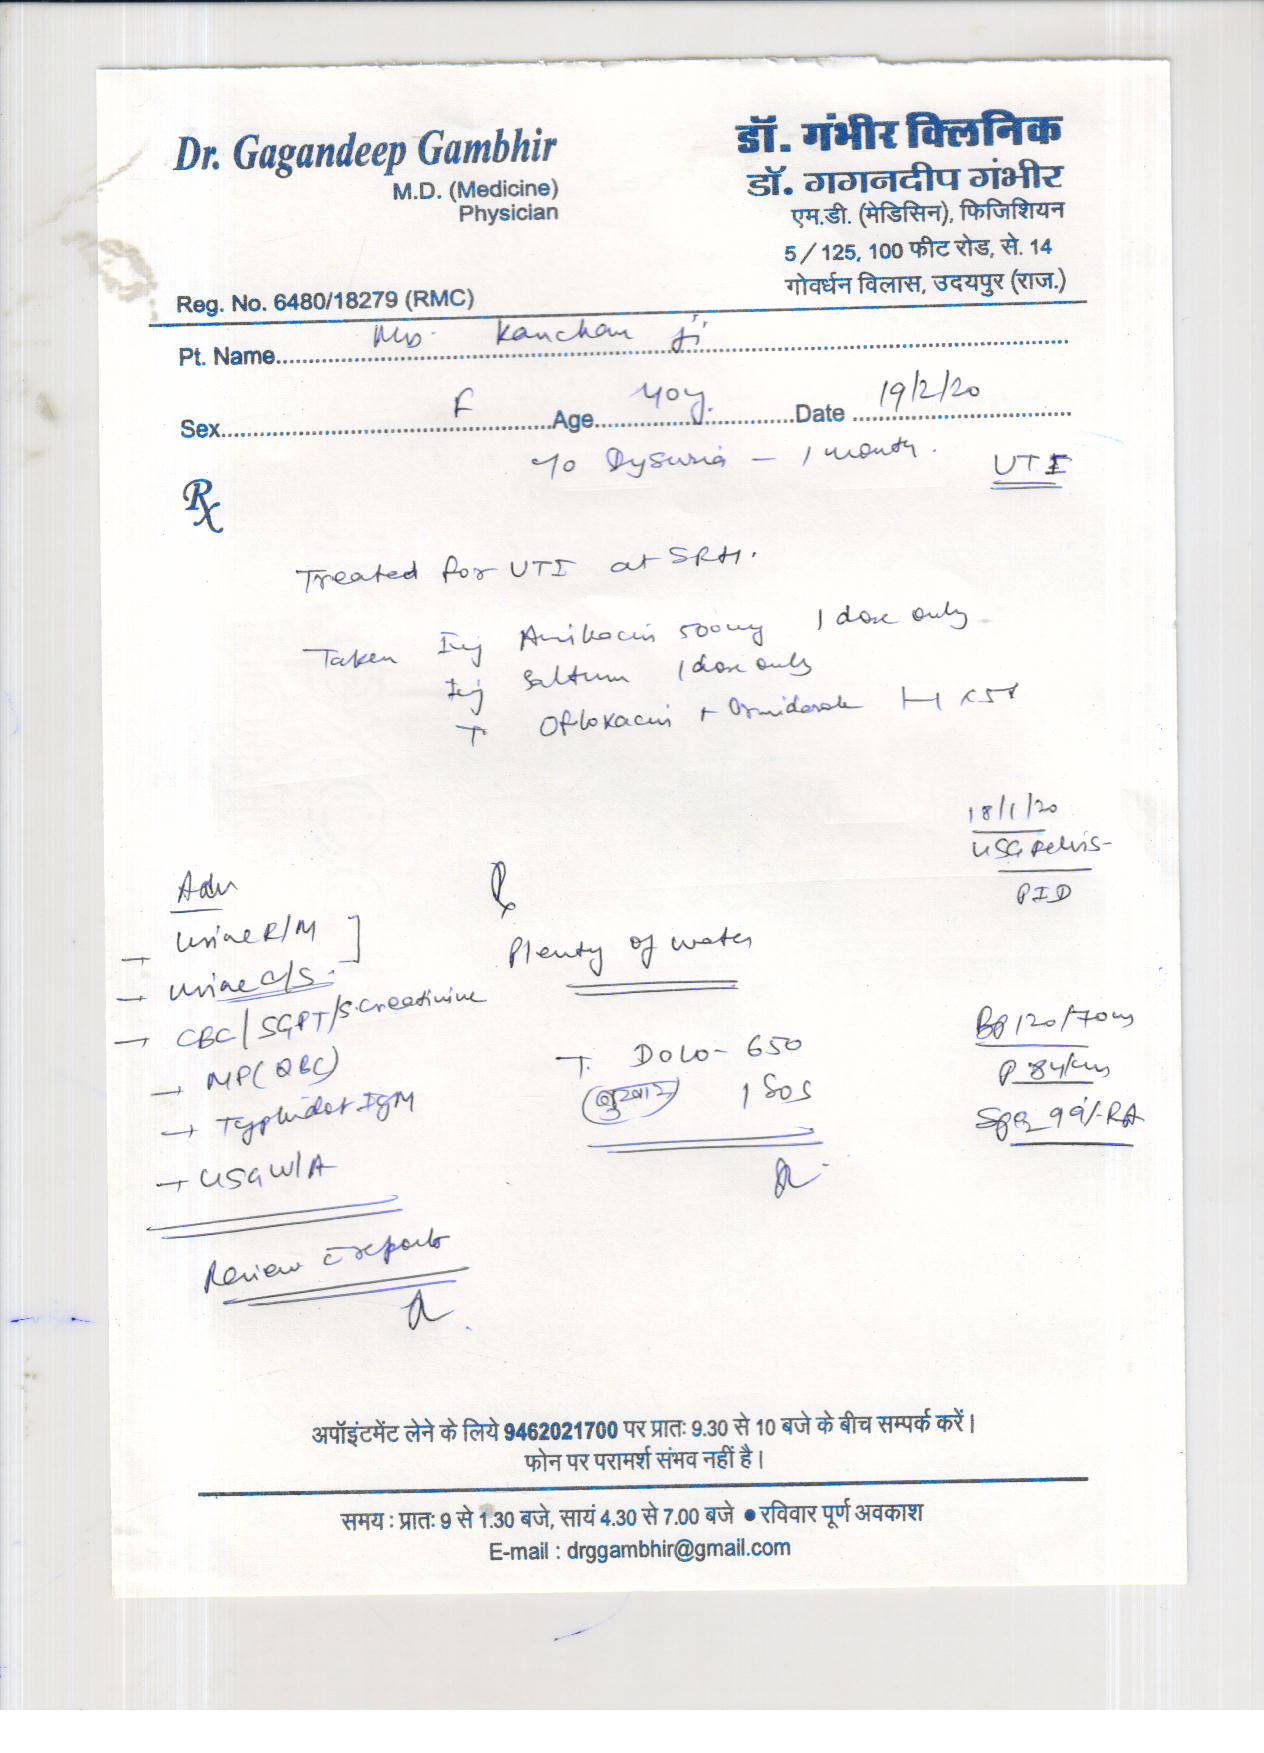 Dr. Gagandeep Gambhir
M.D. (Medicine)
Physician
Reg. No. 6480/18279 (RMC)
डॉ. गंभीर क्लिनिक
डॉ. गगनदीप गंभीर
एम.डी. (मेडिसिन), फिजिशियन
5/125, 100 फीट रोड, से. 14
गोवर्धन विलास, उदयपुर (राज.)
Pt. Name Mrs. Kanchan Ji
Sex F Age 40y. Date 19/2/20
c/o Dysuria - 1 month.
UTI
Rx
Treated for UTI at SRH.
Taken Inj Amikacin 500mg 1 dose only
Inj Saltum 1 dose only
T. Ofloxacin + Ornidazole
18/1/20
USG Pelvis-
PID
Adv
→ Urine R/M
→ Urine C/S.
→ CBC/SGPT/S.Creatinine
→ MP(QBC)
→ Typhidot IgM
→ USG W/A
Review c̄ reports
Rx
Plenty of water
T. DOLO-650
(बुखार) 1 SOS
BP 120/70
P 84/
SpO2 99% RA
अपॉइंटमेंट लेने के लिये 9462021700 पर प्रातः 9.30 से 10 बजे के बीच सम्पर्क करें।
फोन पर परामर्श संभव नहीं है।
समय : प्रातः 9 से 1.30 बजे, सायं 4.30 से 7.00 बजे ● रविवार पूर्ण अवकाश
E-mail : drggambhir@gmail.com